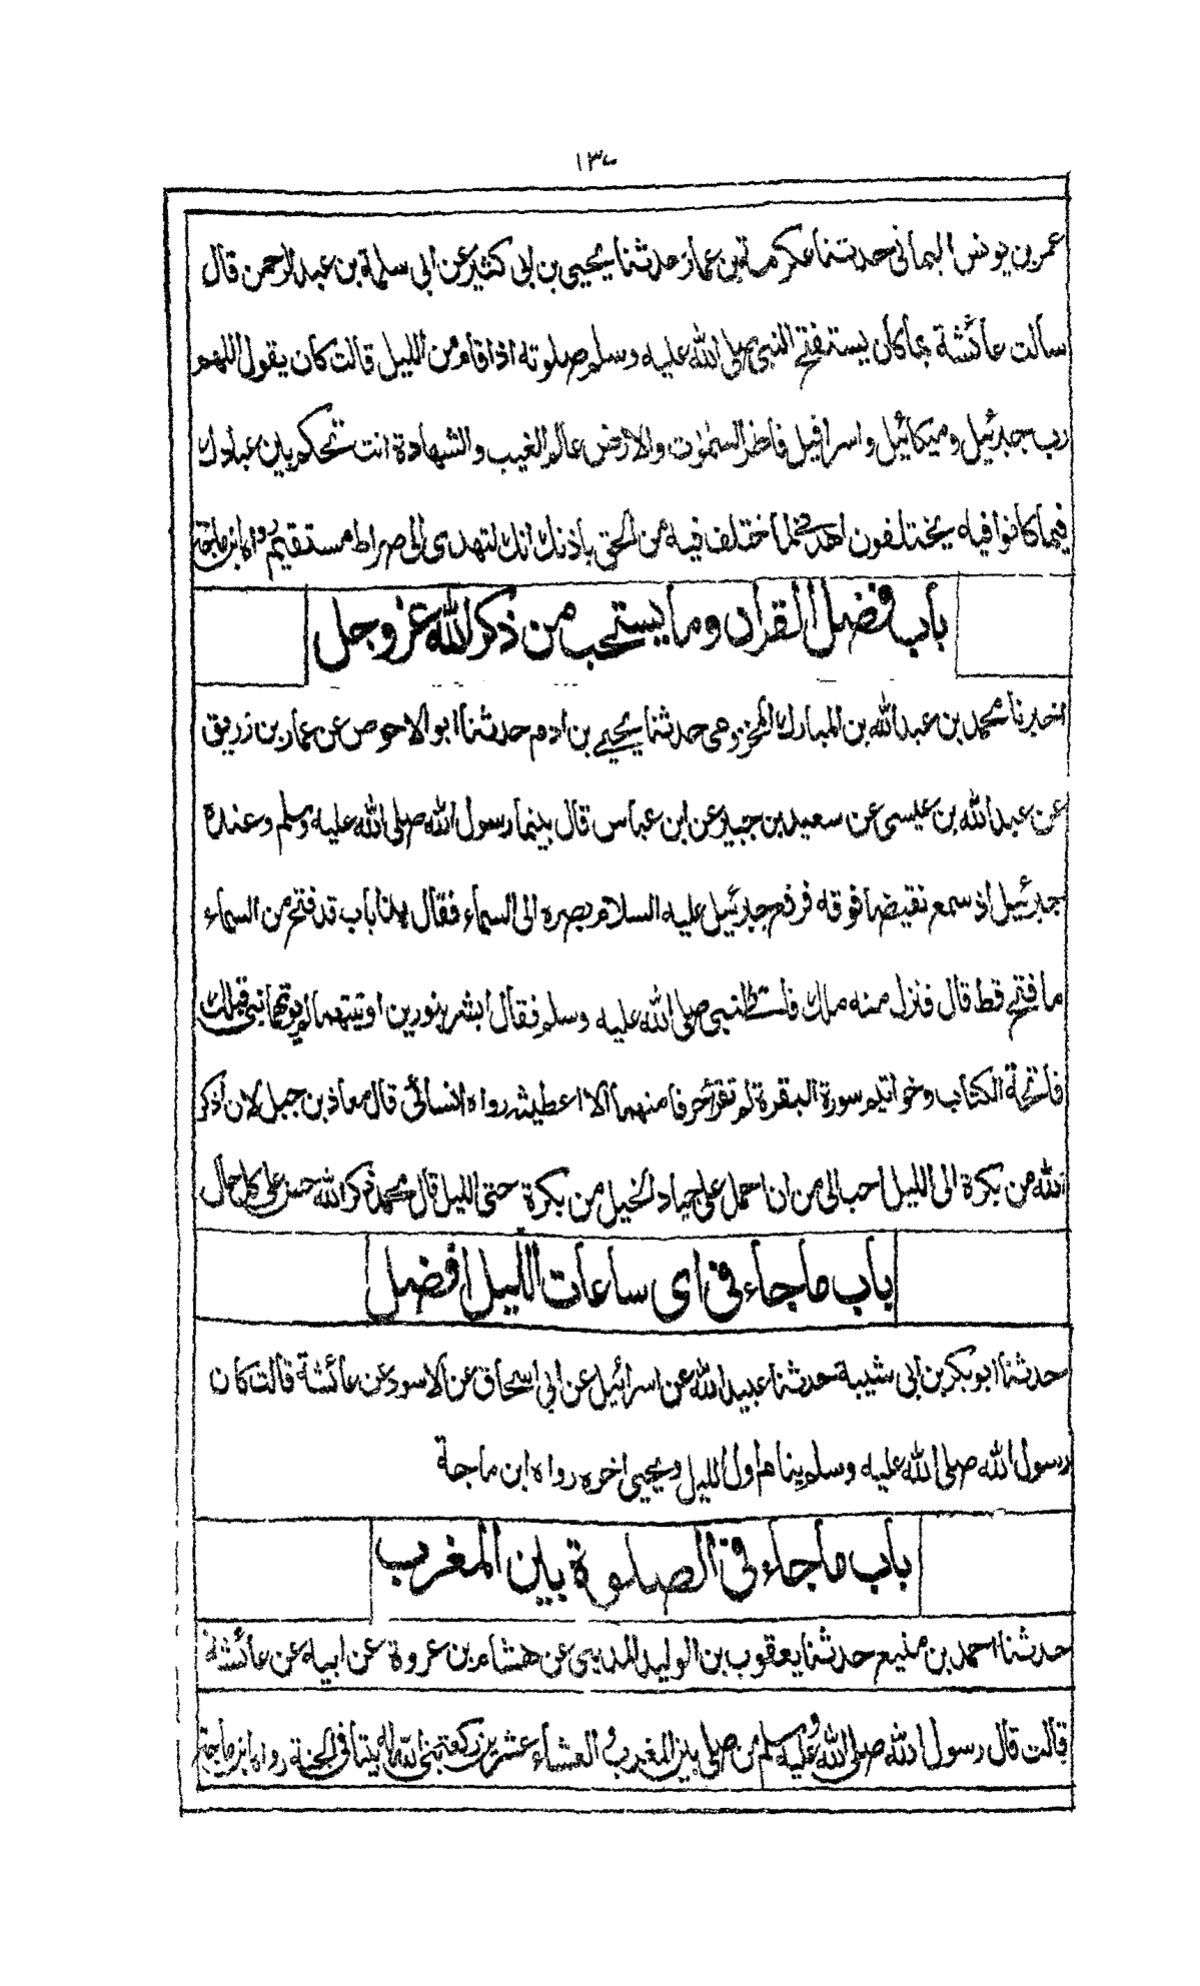 ١٣٠
عمر بن يونس اليماني حدثنا عكرمة بن عمار حدثنا يحيى بن ابى كثير عن ابى سلمة بن عبد الرحمن قال
سألت عائشة بما كان يستفتح النبي صلى الله عليه وسلم صلوته اذا قام من الليل قالت كان يقول اللهم
رب جبرئيل وميكائيل واسرافيل فاطر السمٰوٰت والارض عالم الغيب والشهادة انت تحكم بين عبادك
فيما كانوا فيه يختلفون اهدنى لما اختلف فيه من الحق باذنك انك لتهدى الى صراط مستقيم رواه ابن ماجة
باب فضل القران وما يستحب من ذكر الله عز وجل
اخبرنا محمد بن عبد الله بن المبارك المخزومى حدثنا يحيى بن ادم حدثنا ابو الاحوص عن عمار بن زريق
عن عبد الله بن عيسى عن سعيد بن جبير عن ابن عباس قال بينما رسول الله صلى الله عليه وسلم وعنده
جبرئيل اذ سمع نقيضا فوقه فرفع جبرئيل عليه السلام بصره الى السماء فقال هذا باب قد فتح من السماء
ما فتح قط قال فنزل منه ملك فاتى النبى صلى الله عليه وسلم فقال ابشر بنورين اوتيتهما لم يوتهما نبى قبلك
فاتحة الكتاب وخواتيم سورة البقرة لم تقرأ حرفا منهما الا اعطيته رواه النسائى قال معاذ بن جبل لان اذكر
الله من بكرة الى الليل احب الى من ان احمل على جياد الخيل من بكرة حتى الليل قال محمد ذكر الله حسن على كل حال
باب ما جاء فى اى ساعات الليل افضل
حدثنا ابو بكر بن ابى شيبة حدثنا عبيد الله عن اسرائيل عن ابى اسحاق عن الاسود عن عائشة قالت كان
رسول الله صلى الله عليه وسلم ينام اول الليل ويحيى اخره رواه ابن ماجة
باب ما جاء فى الصلوة بين المغرب
حدثنا احمد بن منيع حدثنا يعقوب بن الوليد المدينى عن هشام بن عروة عن ابيه عن عائشة
قالت قال رسول الله صلى الله عليه وسلم من صلى بين المغرب والعشاء عشرين ركعة بنى الله له بيتا فى الجنة رواه ابن ماجة